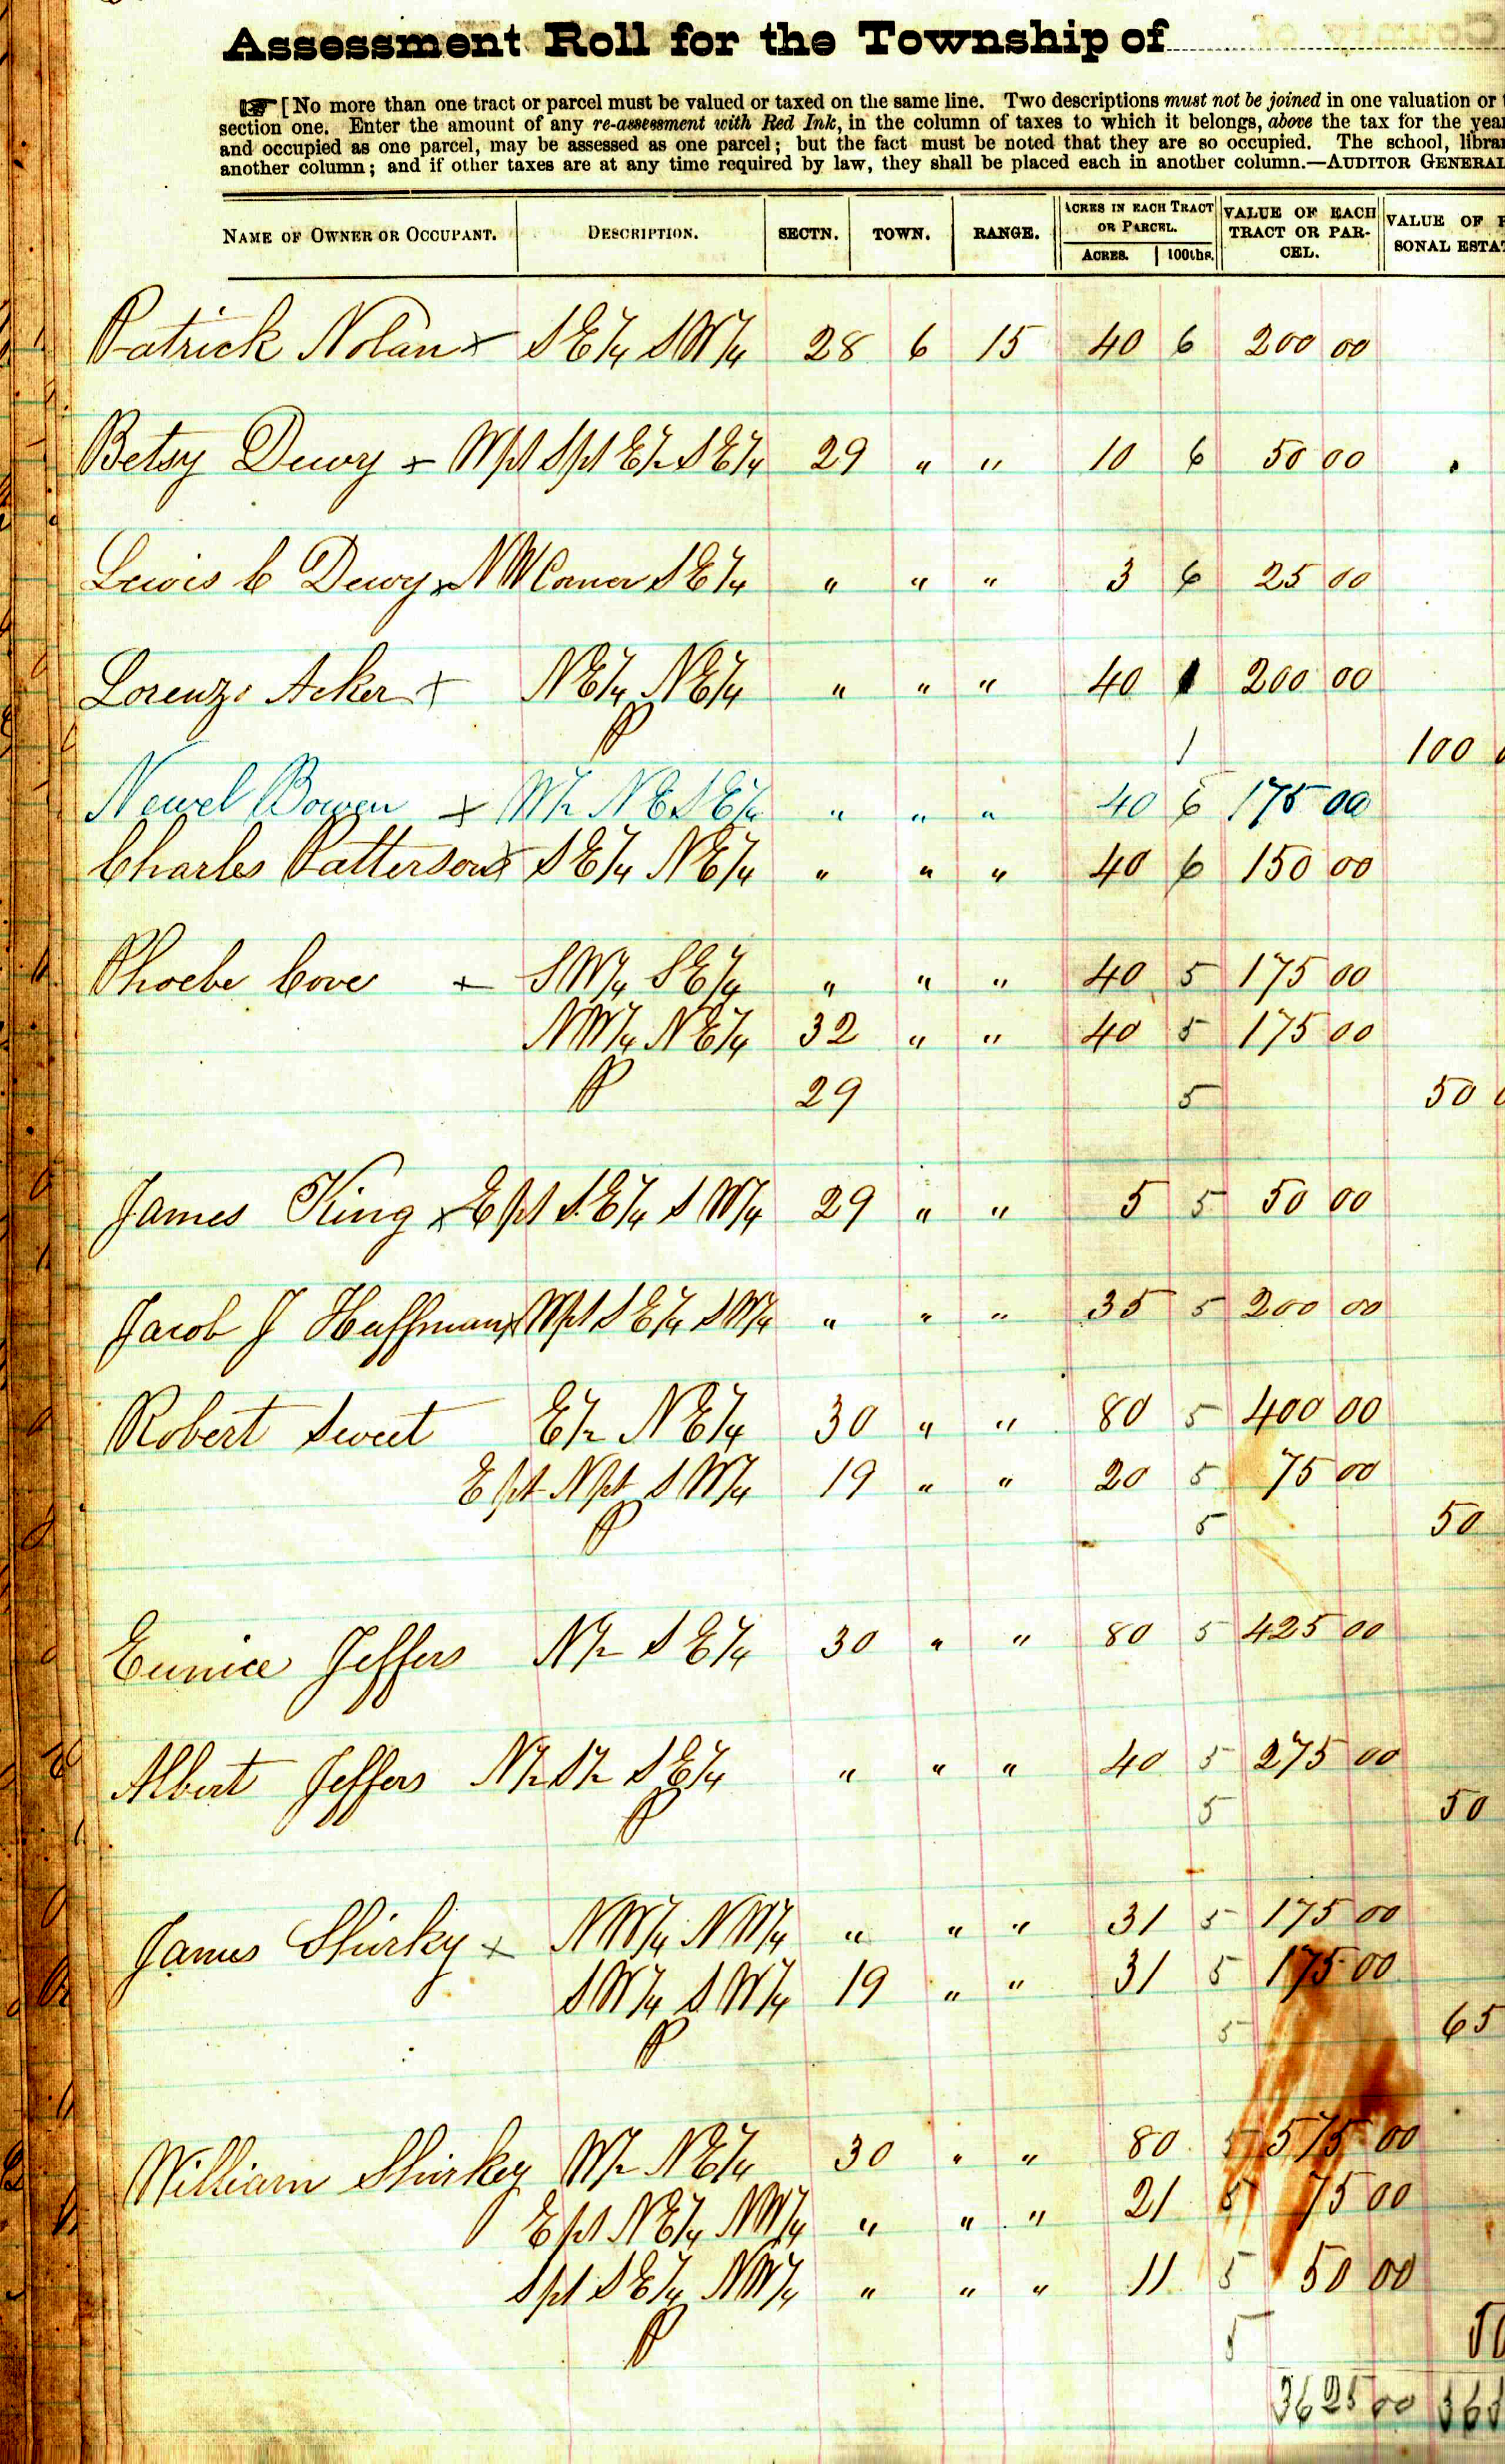 Assessment Roll for the Township of
[No more than one tract or parcel must be valued or taxed on the same line. Two descriptions must not be joined in one valuation or
section one. Enter the amount of any re-assessment with Red Ink, in the column of taxes to which it belongs, above the tax for the year
and occupied as one parcel, may be assessed as one parcel; but the fact must be noted that they are so occupied. The school, librar
another column; and if other taxes are at any time required by law, they shall be placed each in another column.—AUDITOR GENERAL
NAME OF OWNER OR OCCUPANT. DESCRIPTION. SECTN. TOWN. RANGE. ACRES IN EACH TRACT OR PARCEL. ACRES. 100ths. VALUE OF EACH TRACT OR PARCEL. VALUE OF P SONAL ESTAT
Patrick Nolan x S E 1/4 S W 1/4 28 6 15 40 6 200 00
Betsy Dewy x W pt S pt E 1/2 S E 1/4 29 " " 10 6 50 00
Lewis C Dewy x N W Corner S E 1/4 " " " 3 6 25 00
Lorenzo Acker x N E 1/4 N E 1/4 " " " 40 1 200 00
P 1 100 0
Newel Bowen x W 1/2 N E S E 1/4 " " " 40 6 175 00
Charles Patterson x S E 1/4 N E 1/4 " " " 40 6 150 00
Phoebe Cove x S W 1/4 S E 1/4 " " " 40 5 175 00
N W 1/4 N E 1/4 32 " " 40 5 175 00
P 29 5 50 0
James King x E pt S E 1/4 S W 1/4 29 " " 5 5 50 00
Jacob J Huffman x W pt S E 1/4 S W 1/4 " " " 35 5 200 00
Robert Sweet E 1/2 N E 1/4 30 " " 80 5 400 00
E pt N pt S W 1/4 19 " " 20 5 75 00
P 5 50
Eunice Jeffers N 1/2 S E 1/4 30 " " 80 5 425 00
Albert Jeffers N 1/2 S 1/2 S E 1/4 " " " 40 5 275 00
P 5 50
James Shirky x N W 1/4 N W 1/4 " " " 31 5 175 00
S W 1/4 S W 1/4 19 " " 31 5 175 00
P 5 65
William Shirkey W 1/2 N E 1/4 30 " " 80 5 575 00
E pt N E 1/4 N W 1/4 " " " 21 5 75 00
S pt S E 1/4 N W 1/4 " " " 11 5 50 00
P 5 50
3625 00 365